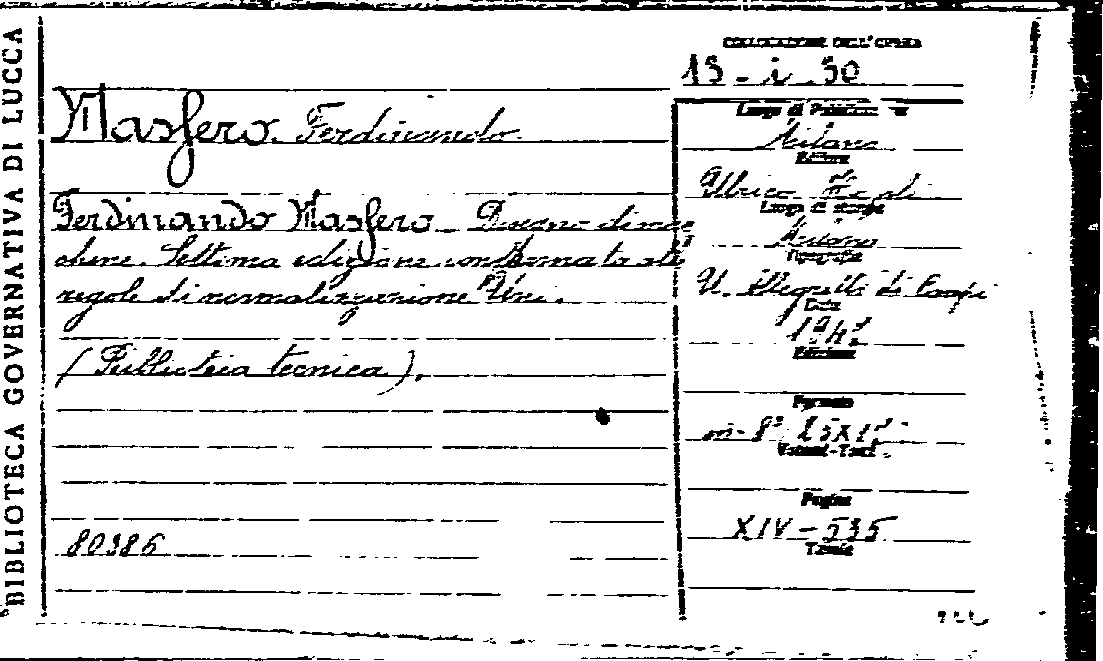 BIBLIOTECA GOVERNATIVA DI LUCCA
COLLOCAZIONE DELL'OPERA
13 - i . 30
Masfero Ferdinando
Ferdinando Masfero - Disegno di mac
chine. Settima edizione conformata alle
regole di normalizzazione Uni.
(Biblioteca tecnica).
80386
Luogo di
Milano
Editore
Ulrico Hoepli
Luogo di stampa
Milano
Tipografia
U. Allegretti di Campi
Data
Edizione
Formato
in-8°
Volumi-Tomi
Pagine
XIV - 535
Tavole